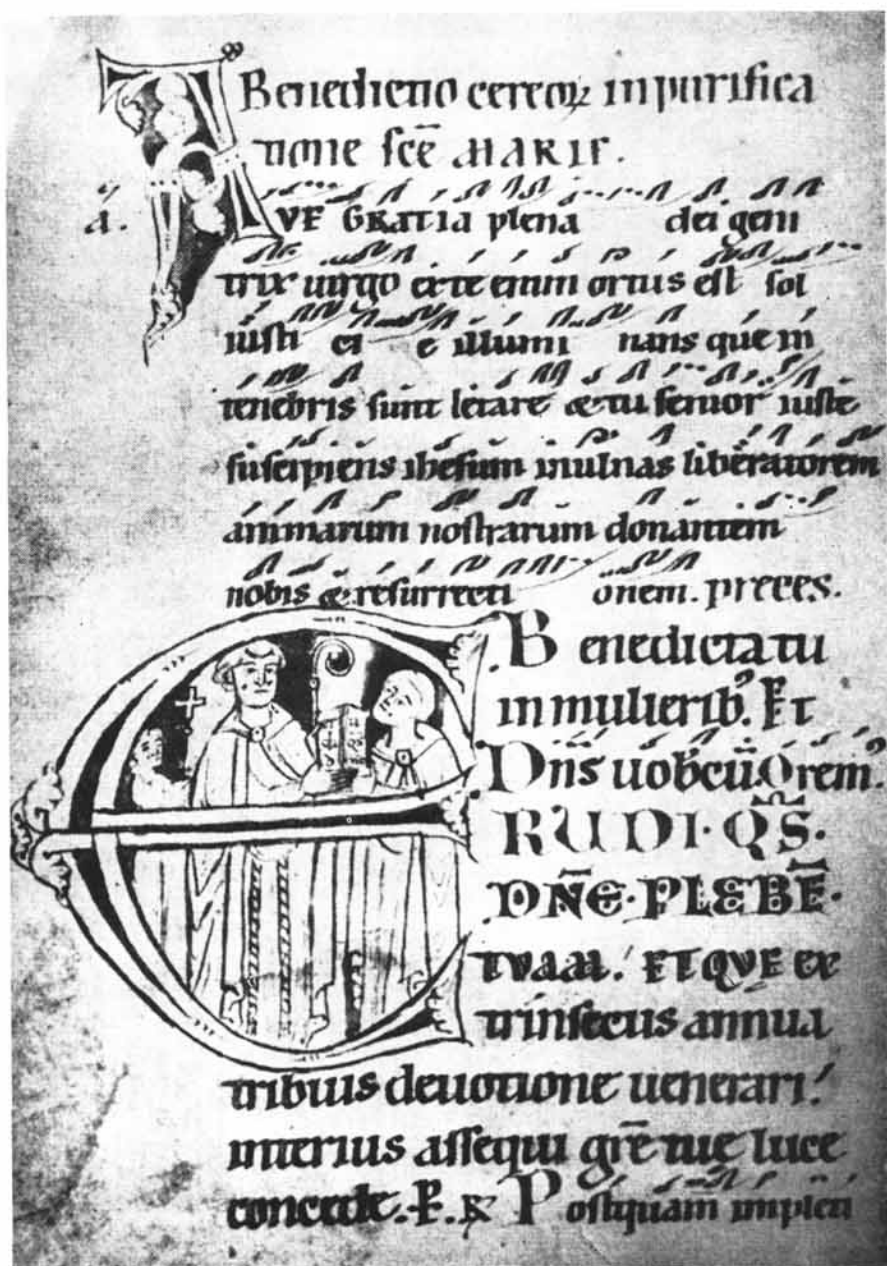 Benedictio cereoꝝ in purifica
tione scē MARIE.
a. AVE GRATIA plena dei geni
trix uirgo ex te enim ortus est sol
iusti ci e illumi nans que in
tenebris sunt letare & tu senior iuste
suscipiens ihesum in ulnas liberatorem
animarum nostrarum donantem
nobis & resurrecti onem. preces.
Benedicta tu
in mulierib⁹. Et
Dn̄s uobcū. Orem⁹.
ERUDI. QS̄.
DN̄E. PLEBĒ.
TVAM. ET QVE ex
trinsecus annua
tribuis deuotione uenerari.
interius assequi grē tue luce
concede. P. R Postquam impleti